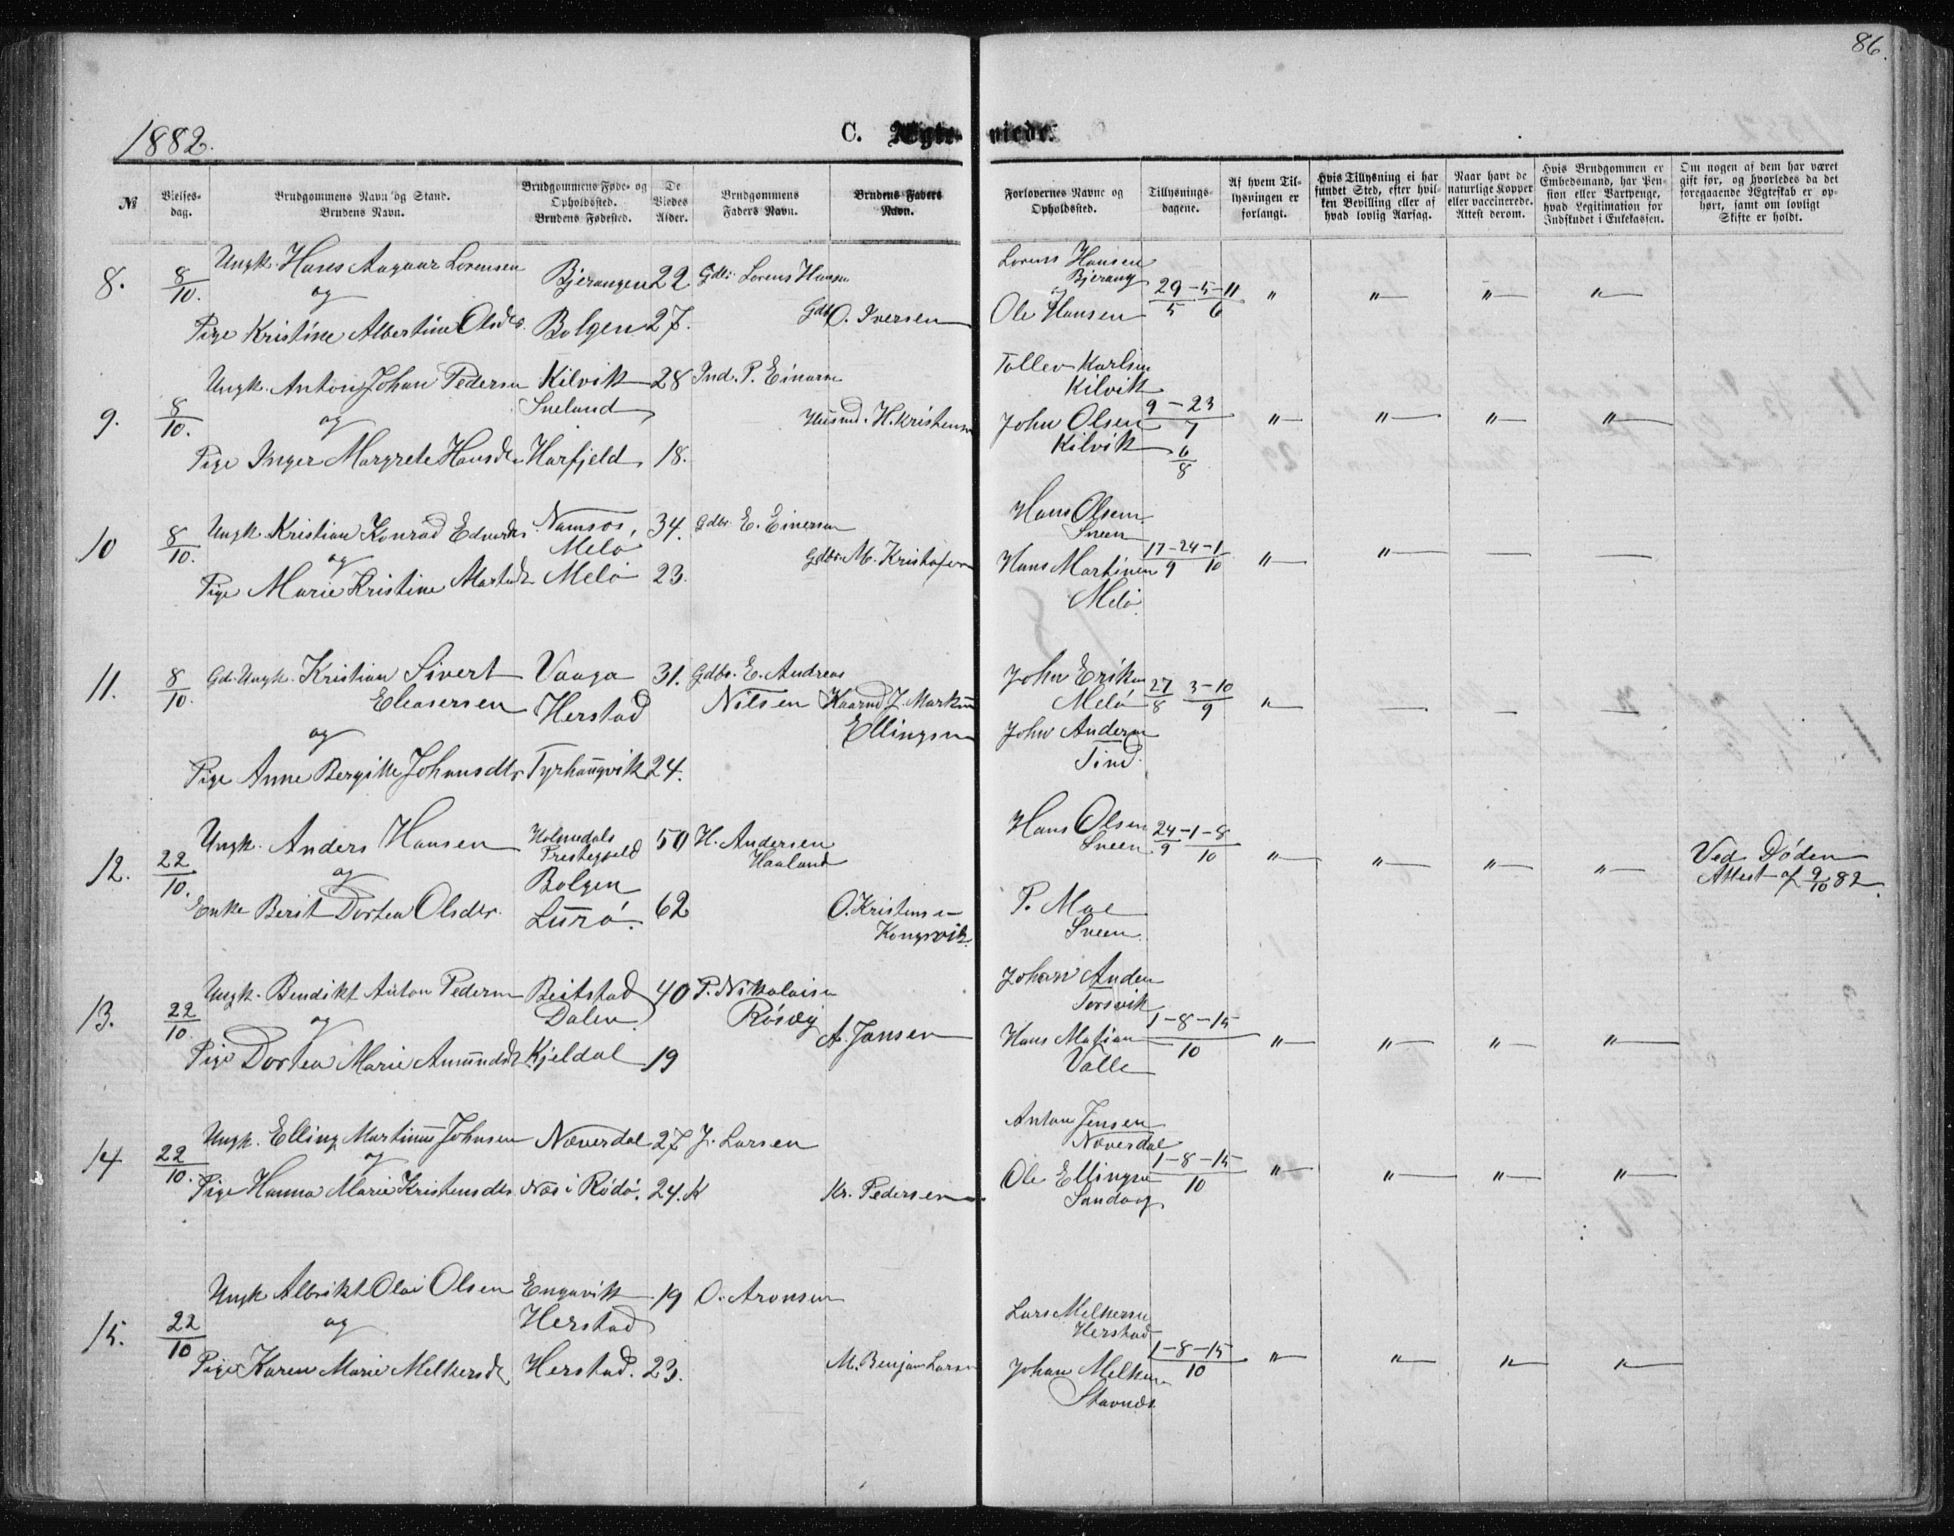 86.
1882.
C. Ægte- viede.
№
Vielses-
dag.
Brudgommens Navn og Stand.
Brudens Navn.
Brudgommens Føde- og
Opholdssted.
Brudens Fødested.
De
Viedes
Alder.
Brudgommens
Faders Navn.
Brudens Faders
Navn.
Forlovernes Navne og
Opholdssted.
Tillysnings-
dagene.
Af hvem Til-
lysningen er
forlangt.
Hvis Tillysning ei har
fundet Sted, efter hvil-
ken Bevilling eller af
hvad lovlig Aarsag.
Naar havt de
naturlige Kopper
eller vaccinerede.
Attest derom.
Hvis Brudgommen er
Embedsmand, har Pen-
sion eller Vartpenge,
hvad Legitimation for
Indskudet i Enkekassen.
Om nogen af dem har været
gift før, og hvorledes da det
foregaaende Ægteskab er op-
hørt, samt om lovligt
Skifte er holdt.
8. 8/10. Ungk. Hans Aagaar Lorensen Bjerangen 22 Gdbr. Lorens Hansen
og
Pige Kristine Albertine Olsdr. Bolgen 27. Gdb. O. Iversen
Lorens Hansen
Bjerang
og 29-5-11 / 5 6 " " " "
Ole Hansen
9. 8/10. Ungk. Anton Johan Pedersen Kilvik 28 Ind. P. Einarsen
og Sneland Husmd. H. Kristensen
Pige Inger Margrete Hansdtr Harfjeld 18.
Tollev Karlsen
Kilvik
John Olsen 9-23 / 7 " " " "
Kilvik 6/8
10 8/10. Ungk Kristian Konrad Edvards Namsos, 34. Gdbr. E. Einersen
og Melö Gdbr. M. Kristofersen
Pige Marie Kristine Martsdtr Melö 23.
Hans Olsen
Sneen
Hans Martinsen 17-24-1 / 9 10 " "
Melö.
11. 8/10. Gdb. Ungk. Kristian Sivert Vaaga 31. Gdbr. E. Andreas
Eleasersen Herstad Nilsen J. Markus
og Ellingsen
Pige Anne Bergitte Johansdtr Tyrhaugvik 24.
John Eriksen
Melö 27/8 3-10/9 "
John Andersen
Tind.
12. 22/10. Ungk. Anders Hansen Holmedals 50 H. Andersen
Prestegjeld Haaland
og Bolgen
Enke Berit Dortea Olsdtr. Lurö. 62 O. Kristensen
Kongsvik.
Hans Olsen
Sneen 24-1-8 / 9 10 " " " "
P. Moe
Sneen.
Ved Döden
Attest af 9/10 82.
13. 22/10. Ungk. Bendikt Anton Pedersen Beitstad 40 P. Nikolaisen
og Dalen. Rösvg A. Jansen
Pige Dortea Marie Amundsd Kjeldal 19
Johan Anders
Torsvik
Hans Matian 1-8-15 / 10 " " " "
Valle
14 22/10. Ungk. Elling Martinus Johnsen Næverdal 27 J. Larsen
og
Pige Hanna Marie Kristensdtr. Næs i Rödö. 24. K Kr. Pedersen
Anton Jensen
Næverdal
Ole Ellingsen 1-8-15 / 10 " " " "
Sandvg
15. 22/10 Ungk Albrikt Olai Olsen Engavik 19 O. Aronsen
og Herstad
Pige Karen Marie Melkersdtr Herstad. 23. M. Benjam Larsen
Lars Melkersen
Herstad
Johan Melkersen 1-8-15 / 10 " " " "
Stavnæs